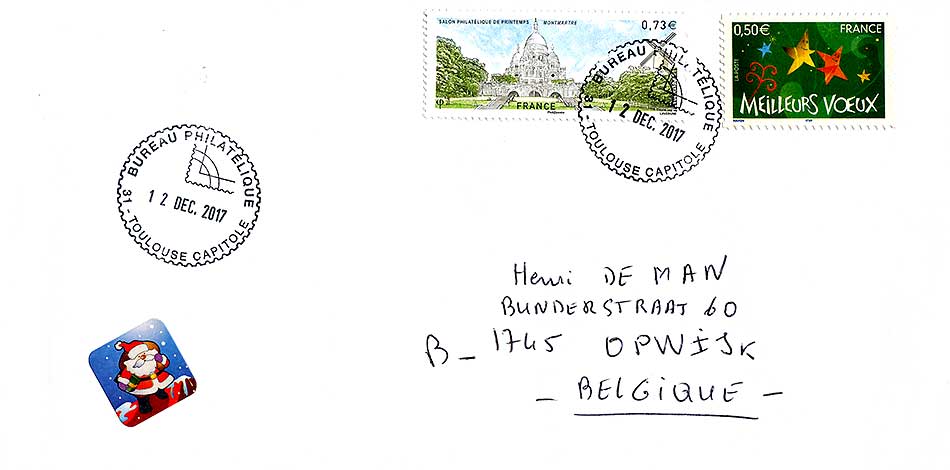 SALON PHILATÉLIQUE DE PRINTEMPS MONTMARTRE 0,73€
FRANCE
0,50€ FRANCE
LA POSTE
MEILLEURS VŒUX
BUREAU PHILATÉLIQUE
12 DEC. 2017
31 - TOULOUSE CAPITOLE
BUREAU PHILATÉLIQUE
12 DEC. 2017
31 - TOULOUSE CAPITOLE
Henri DE MAN
BUNDERSTRAAT 60
B_ 1745 OPWIJK
_ BELGIQUE _